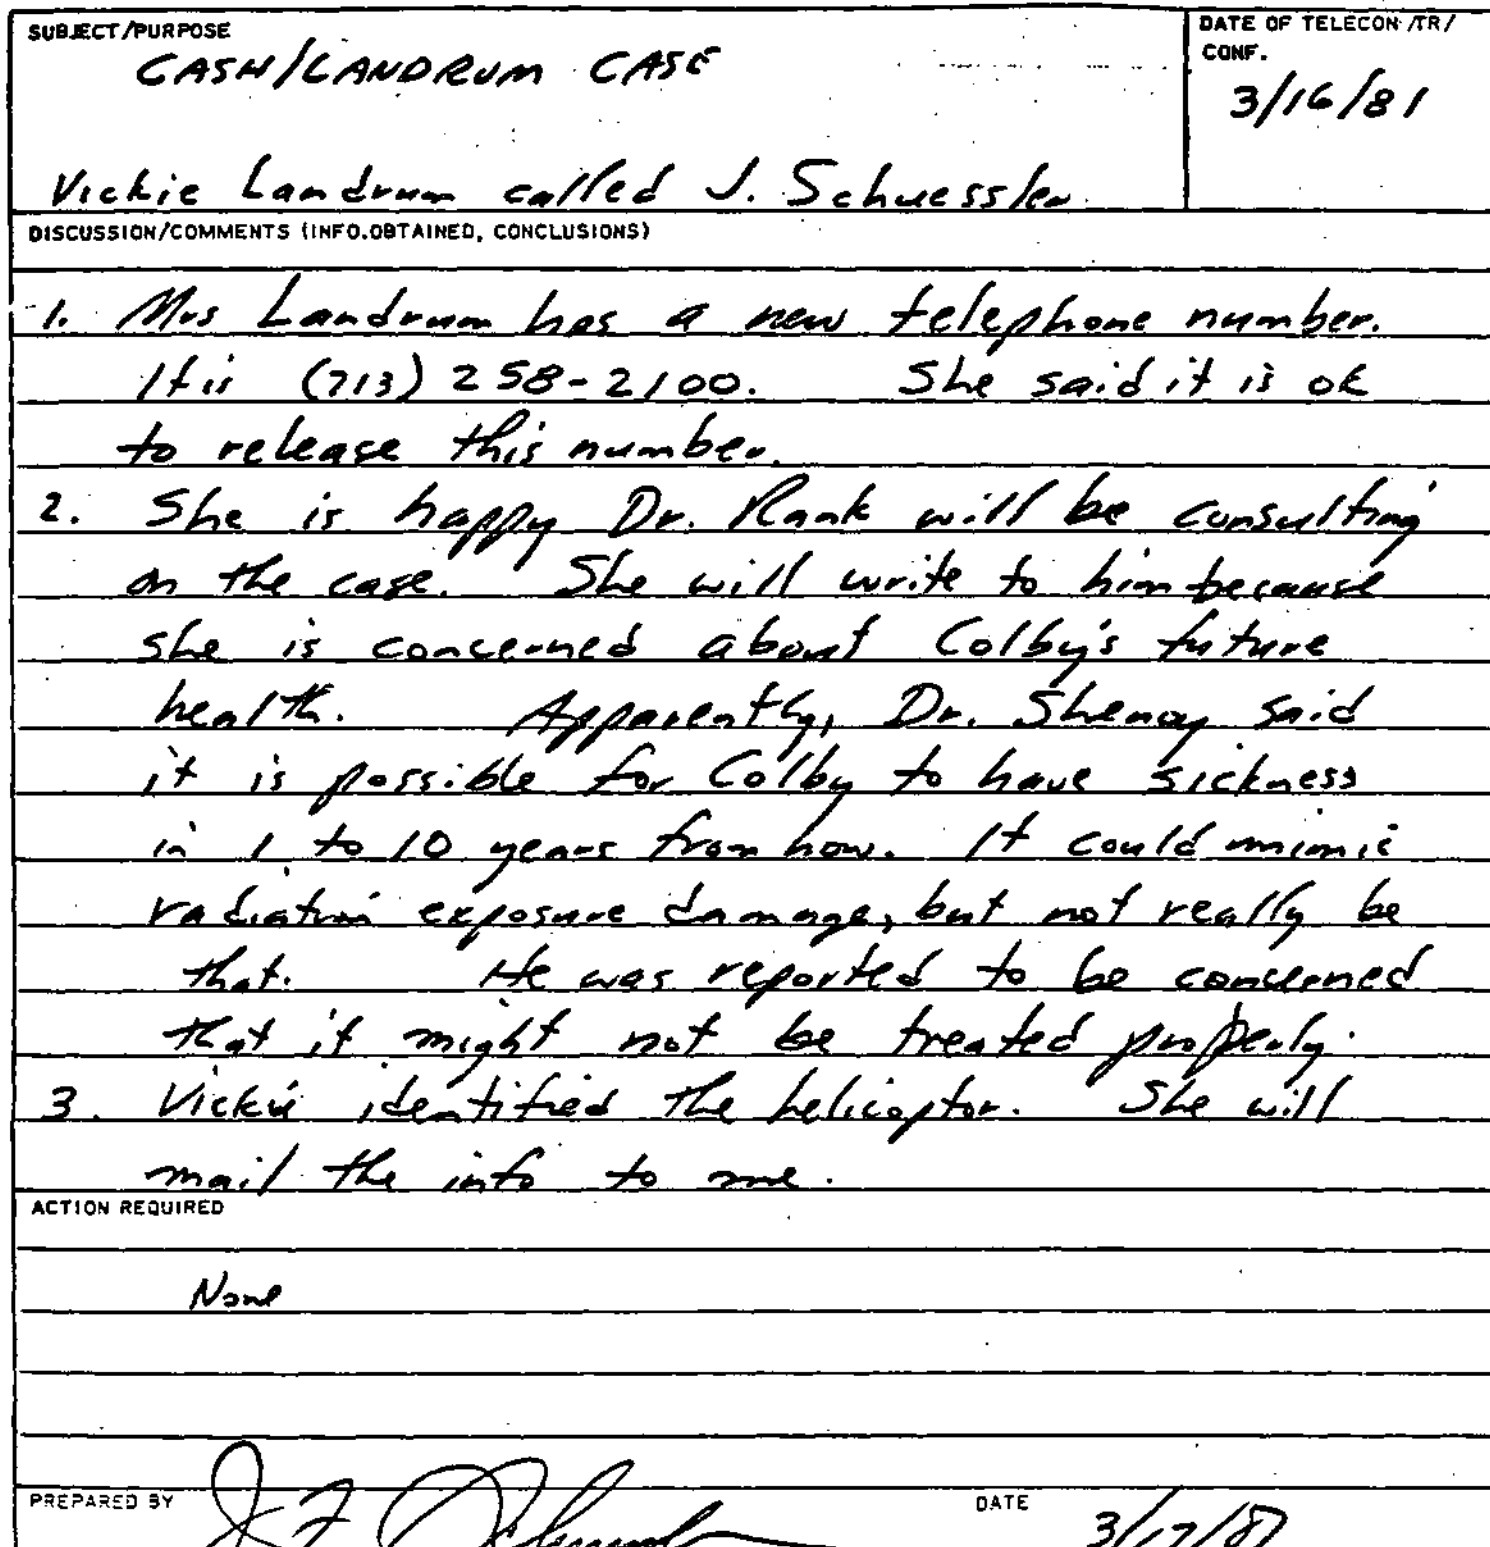 SUBJECT/PURPOSE
CASH/LANDRUM CASE
DATE OF TELECON /TR/
CONF.
3/16/81
Vickie Landrum called J. Schuessler
DISCUSSION/COMMENTS (INFO.OBTAINED, CONCLUSIONS)
1. Mrs Landrum has a new telephone number.
It is (713) 258-2100. She said it is ok
to release this number.
2. She is happy Dr. Rank will be consulting
on the case. She will write to him because
she is concerned about Colby's future
health. Apparently, Dr. Shenoy said
it is possible for Colby to have sickness
in 1 to 10 years from now. It could mimic
radiation exposure damage, but not really be
that. He was reported to be concerned
that it might not be treated properly.
3. Vickie identified the helicoptor. She will
mail the info to me.
ACTION REQUIRED
None
PREPARED BY
DATE